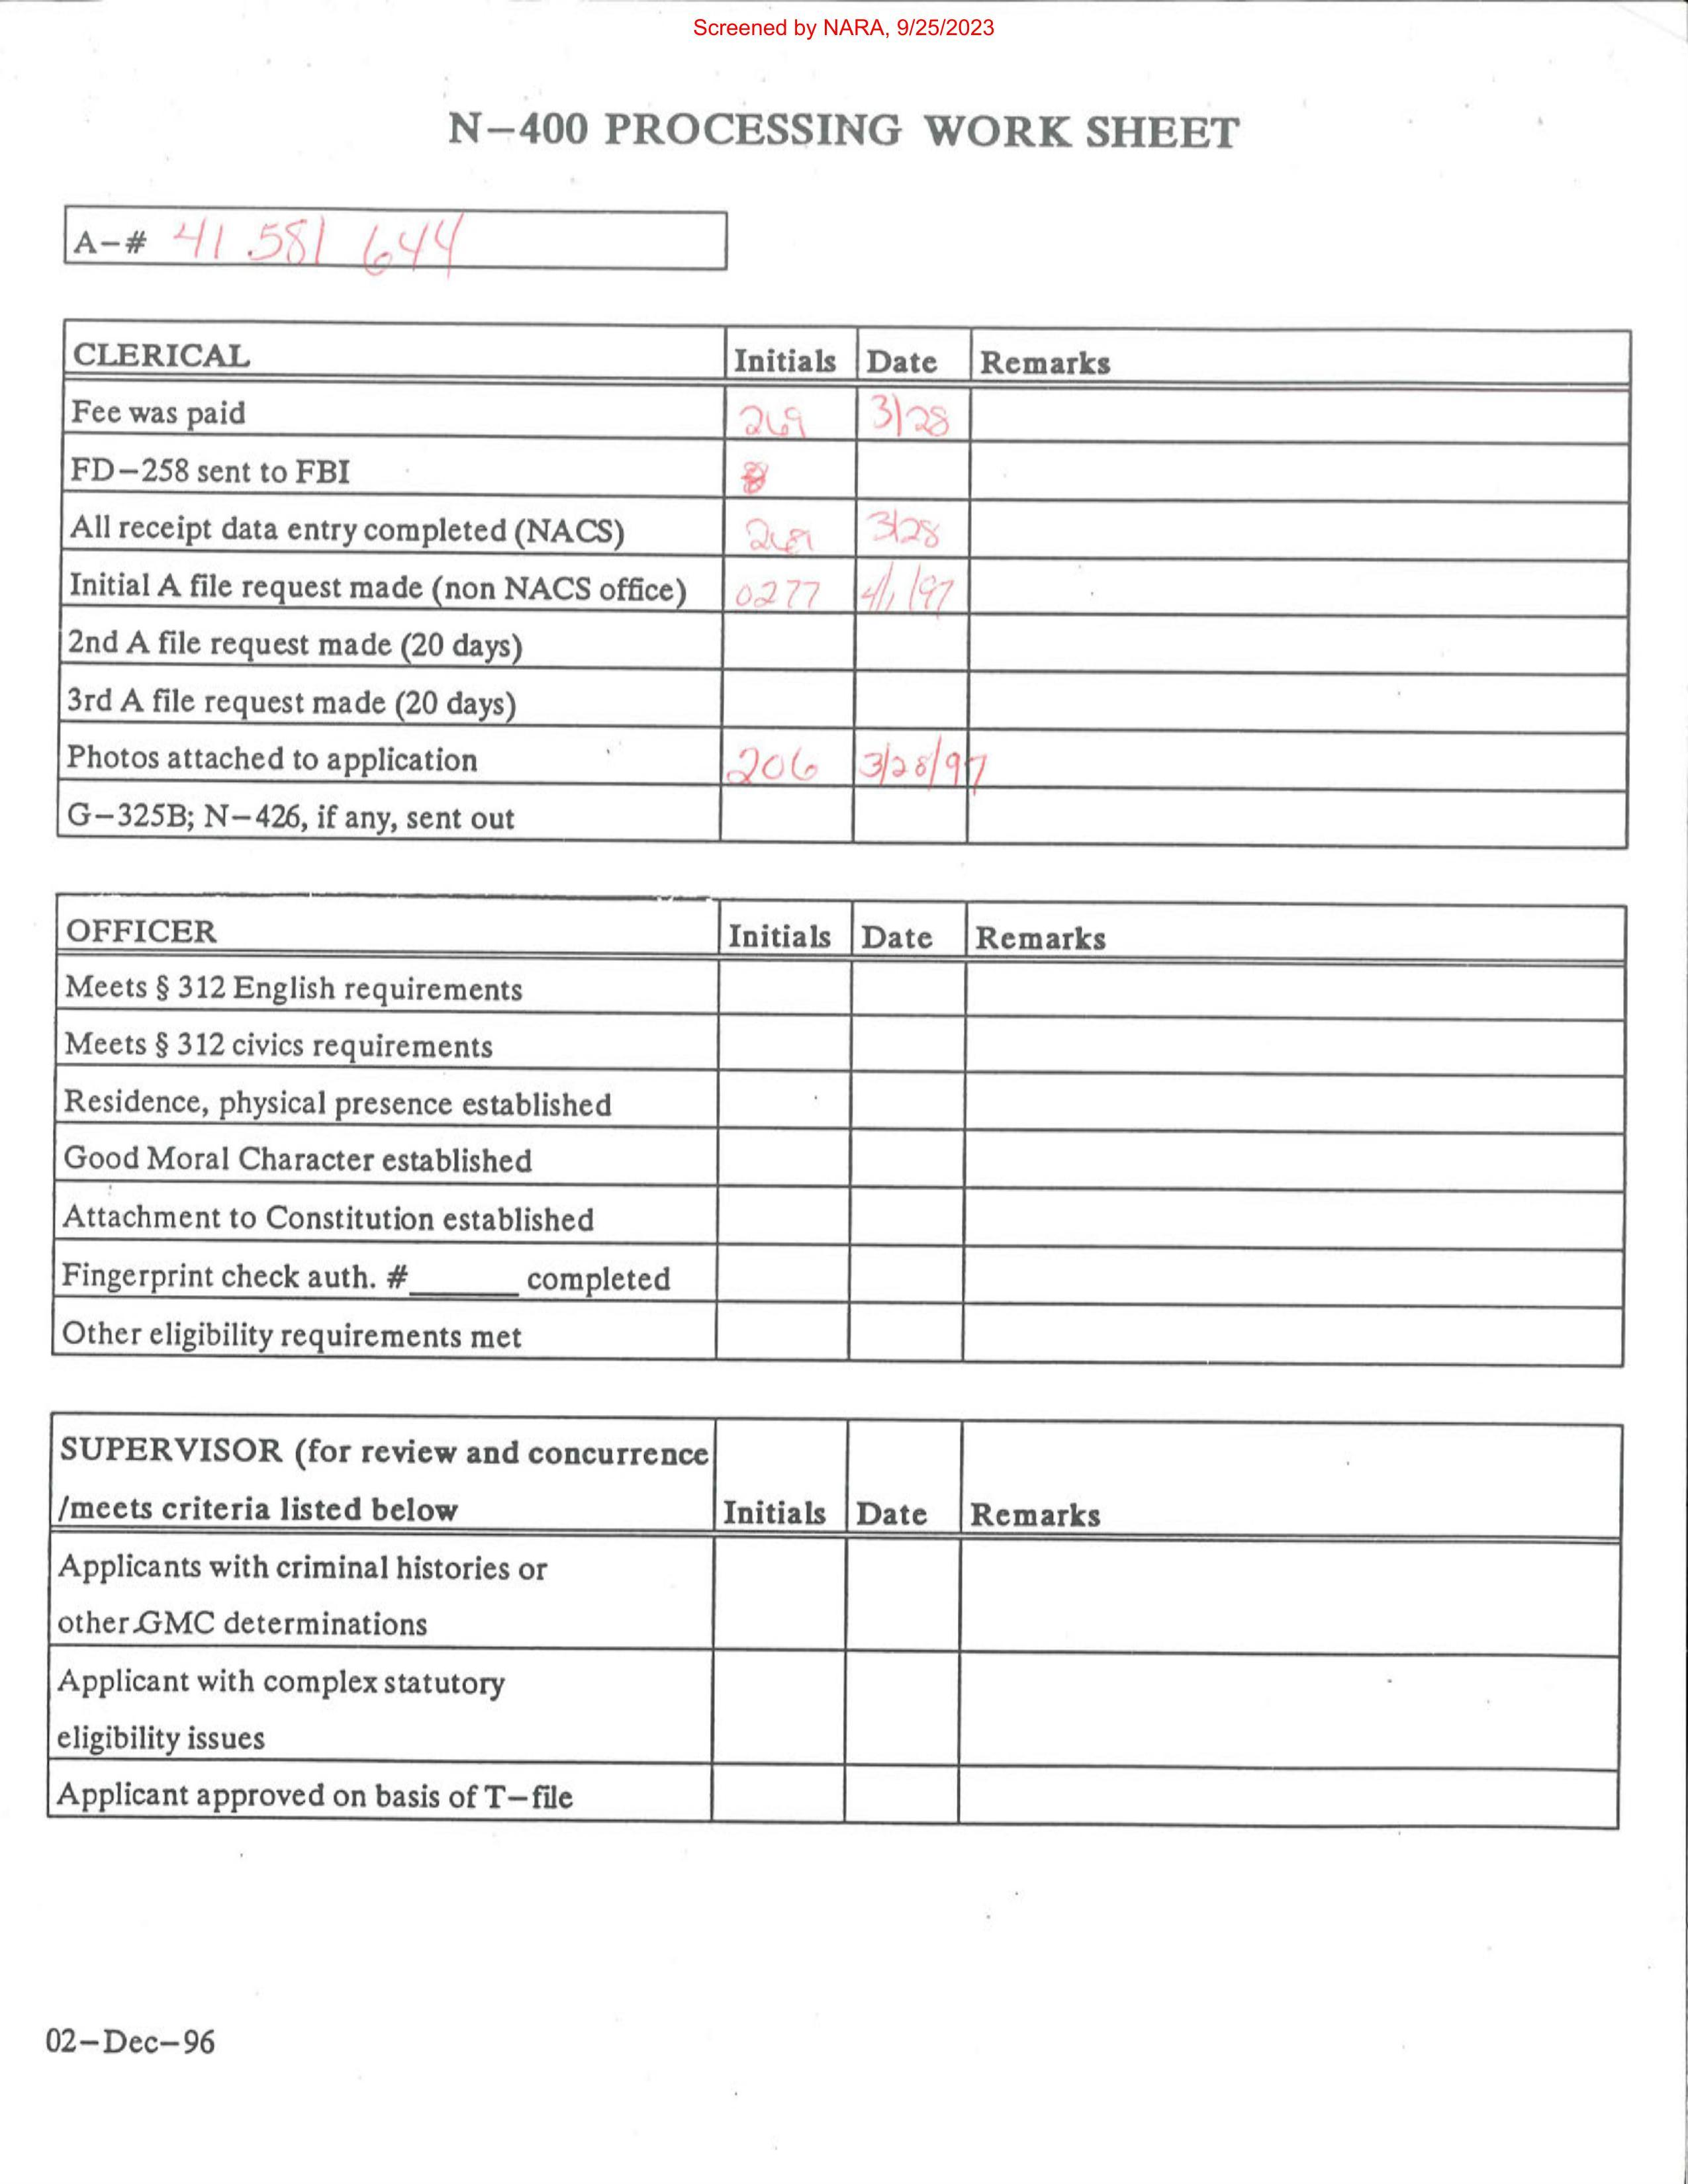 Screened by NARA, 9/25/2023
N-400 PROCESSING WORK SHEET
A-# 41 581 644
CLERICAL Initials Date Remarks
Fee was paid 269 3/28
FD-258 sent to FBI
All receipt data entry completed (NACS) 269 3/28
Initial A file request made (non NACS office) 0277 4/1/97
2nd A file request made (20 days)
3rd A file request made (20 days)
Photos attached to application 206 3/28/97
G-325B; N-426, if any, sent out
OFFICER Initials Date Remarks
Meets § 312 English requirements
Meets § 312 civics requirements
Residence, physical presence established
Good Moral Character established
Attachment to Constitution established
Fingerprint check auth. #______ completed
Other eligibility requirements met
SUPERVISOR (for review and concurrence
/meets criteria listed below Initials Date Remarks
Applicants with criminal histories or
other GMC determinations
Applicant with complex statutory
eligibility issues
Applicant approved on basis of T-file
02-Dec-96